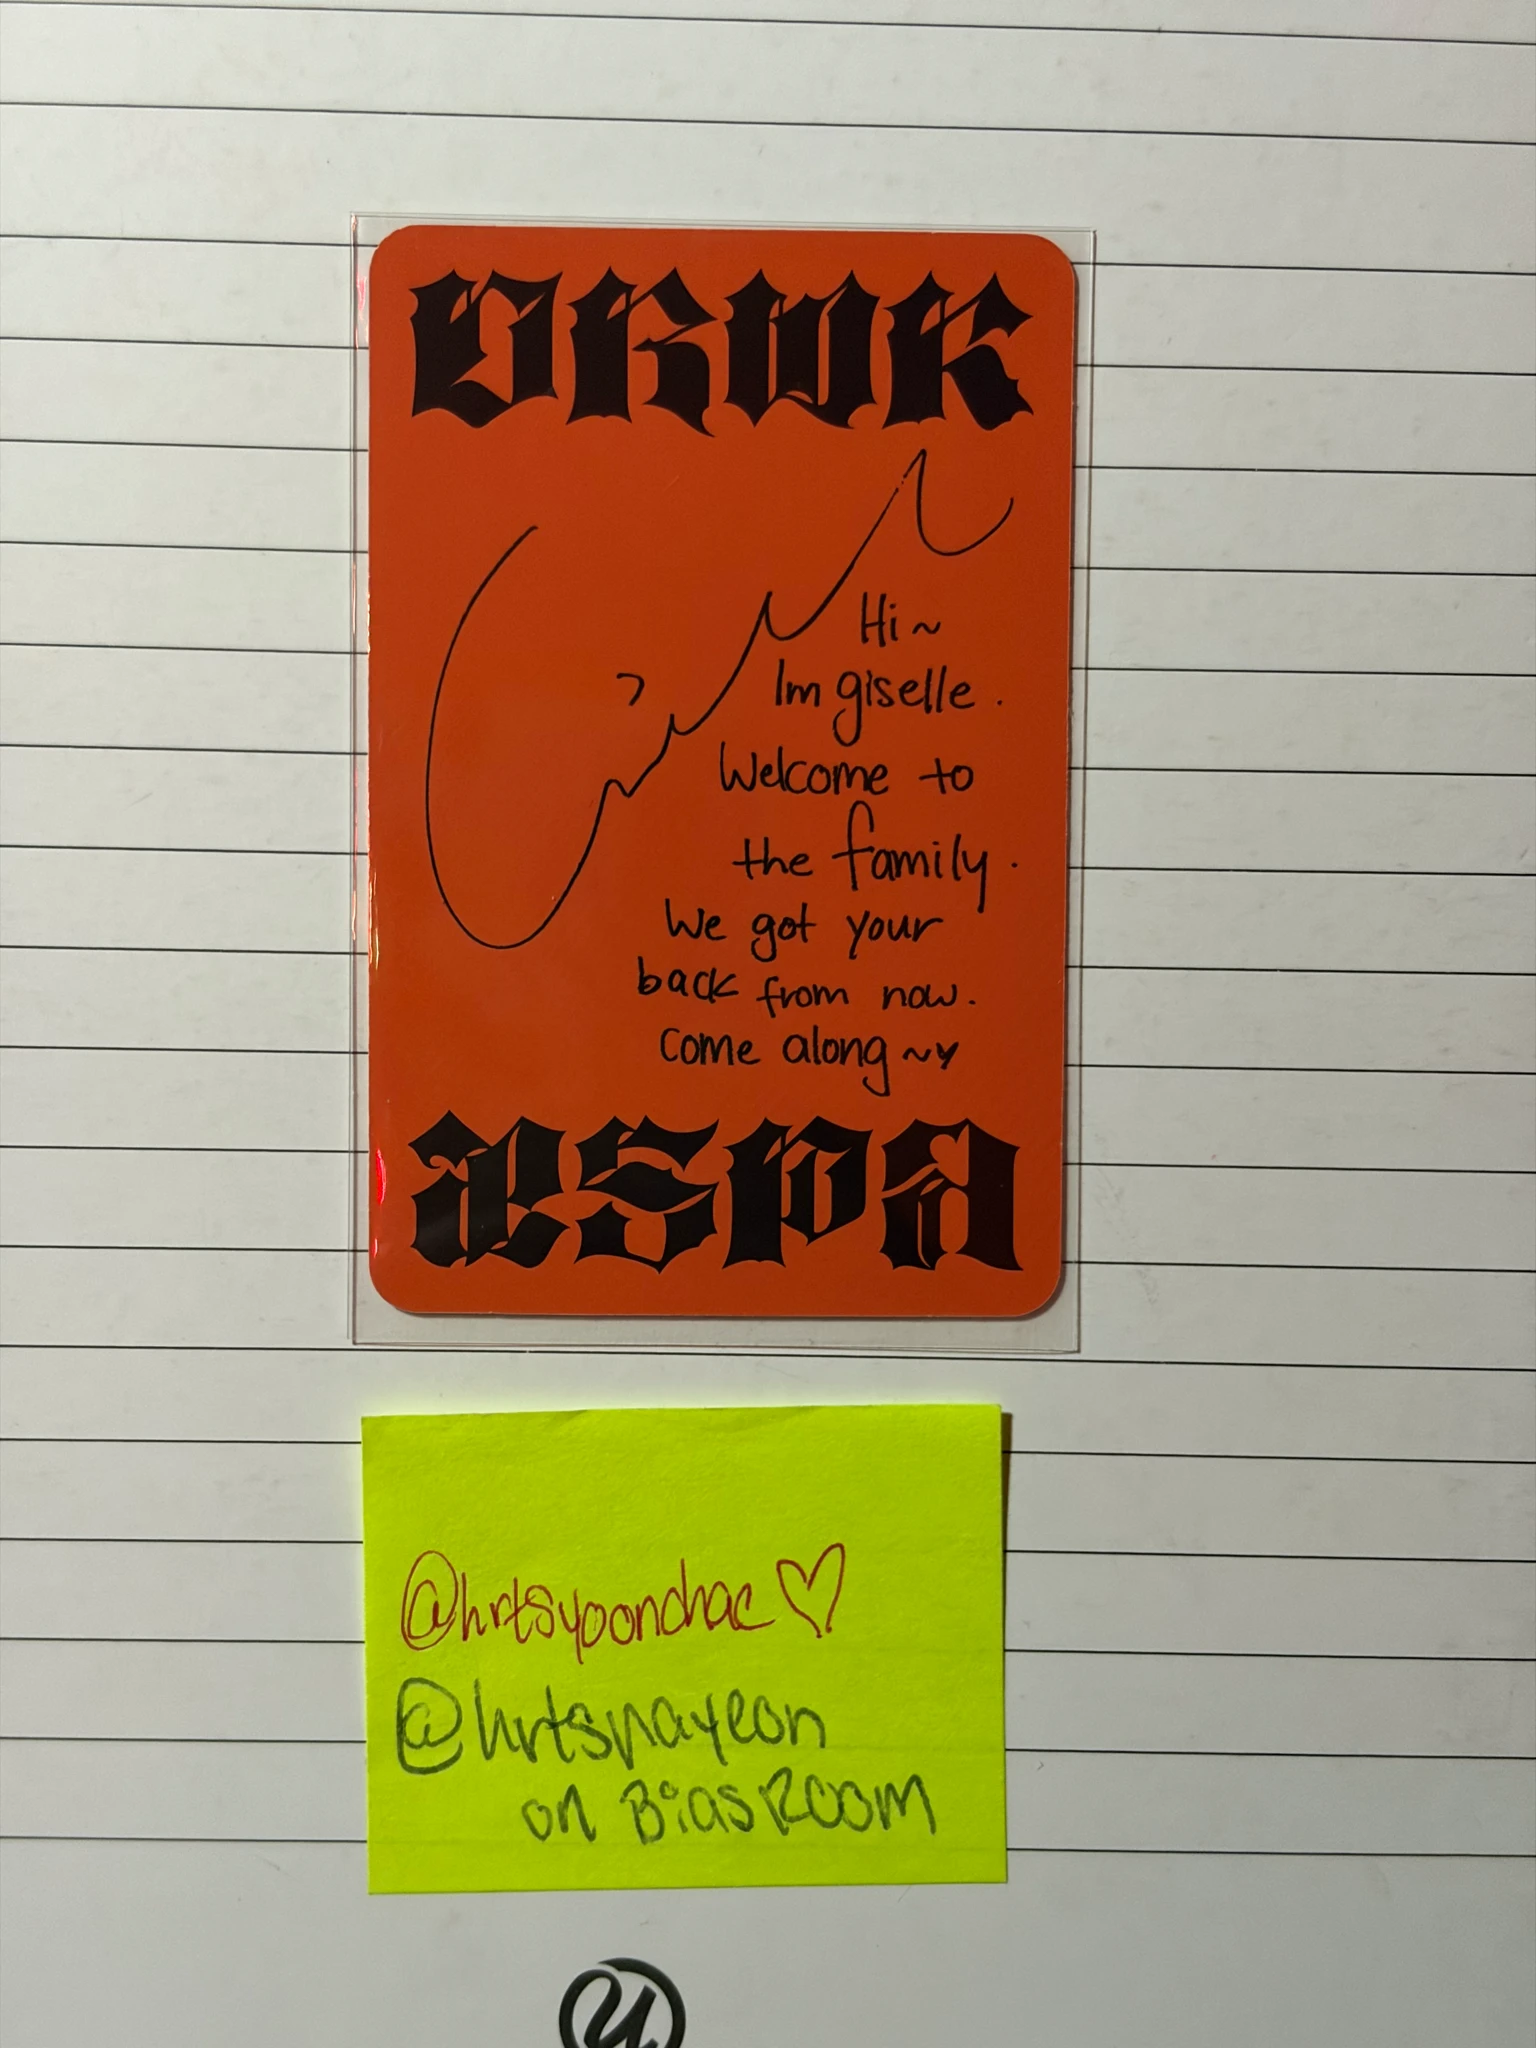 DRWK
Hi~
Im giselle.
Welcome to
the family.
We got your
back from now.
Come along ~♥
æspa
@hrtsyoonchae♡
@hrtsnayeon
on BiasRoom